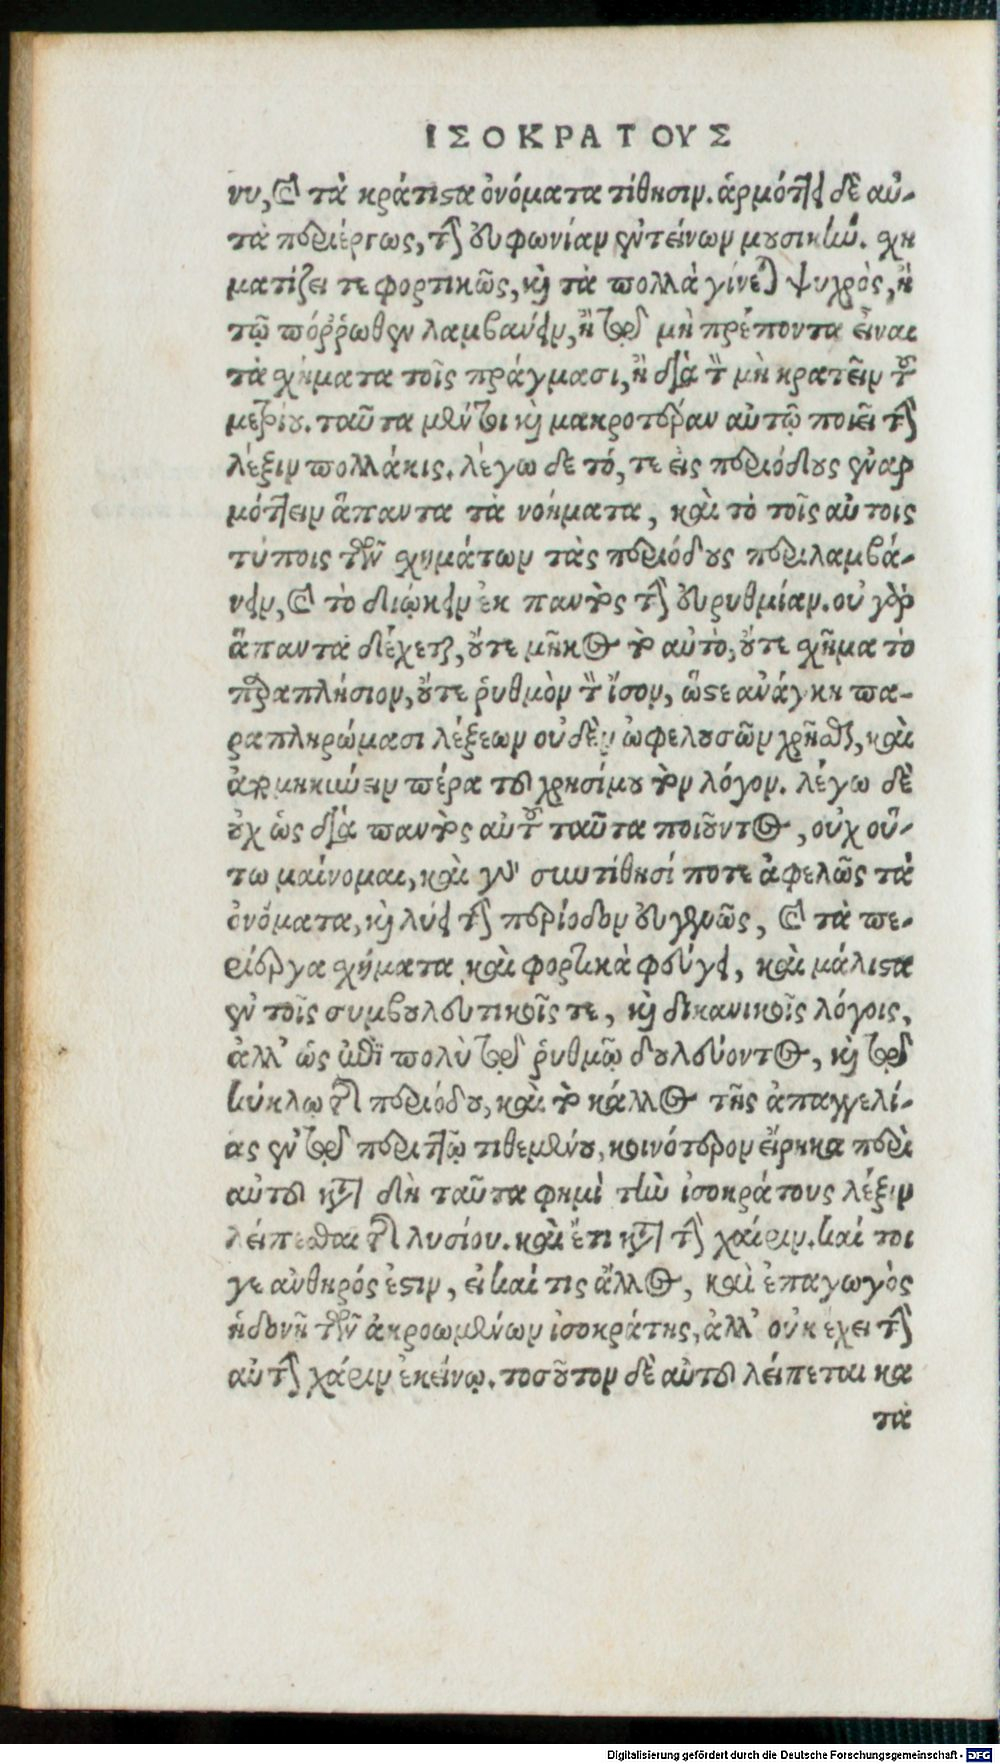 ΙΣΟΚΡΑΤΟΥΣ
νυ, καὶ τὰ κράτιστα ὀνόματα τίθησιν. ἁρμόττει δὲ αὐ-
τὰ περιέργως, τὴν εὐφωνίαν ἐντείνων μουσικήν. σχη
ματίζει τε φορτικῶς, καὶ τὰ πολλὰ γίνεται ψυχρὸς, ἢ
τῷ πόῤῥωθεν λαμβάνειν, ἢ τῷ μὴ πρέποντα εἶναι
τὰ σχήματα τοῖς πράγμασι, ἢ διὰ τὸ μὴ κρατεῖν τοῦ
μετρίου. ταῦτα μέντοι καὶ μακροτέραν αὐτῷ ποιεῖ τὴν
λέξιν πολλάκις. λέγω δε τό, τε εἰς περιόδους ἐναρ
μόττειν ἅπαντα τὰ νοήματα, καὶ τὸ τοῖς αὐτοις
τύποις τῶν σχημάτων τὰς περιόδους περιλαμβά-
νειν, καὶ τὸ διώκειν ἐκ παντὸς τὴν εὐρυθμίαν. οὐ γὰρ
ἅπαντα δέχεται, οὔτε μῆκος τὸ αὐτὸ, οὔτε σχῆμα τὸ
παραπλήσιον, οὔτε ῥυθμὸν τὸν ἴσον, ὥστε ἀνάγκη πα-
ραπληρώμασι λέξεων οὐδὲν ὠφελουσῶν χρῆσθαι, καὶ
ἀπομηκύνειν πέρα τοῦ χρησίμου τὸν λόγον. λέγω δὲ
οὐχ ὡς διὰ παντὸς αὐτοῦ ταῦτα ποιοῦντος, οὐχ οὕ-
τω μαίνομαι, καὶ γὰρ συντίθησί ποτε ἀφελῶς τὰ
ὀνόματα, καὶ λύει τὴν περίοδον εὐγενῶς, καὶ τὰ πε-
ρίεργα σχήματα καὶ φορτικὰ φεύγει, καὶ μάλιστα
ἐν τοῖς συμβουλευτικοῖς τε, καὶ δικανικοῖς λόγοις,
ἀλλ' ὡς ἐπὶ πολὺ τῷ ῥυθμῷ δουλεύοντος, καὶ τῷ
κύκλῳ τῆς περιόδου, καὶ τὸ κάλλος τῆς ἀπαγγελί-
ας ἐν τῷ περιττῷ τιθεμένου, κοινότερον εἴρηκα περὶ
αὐτοῦ κατὰ δὴ ταῦτα φημὶ τὴν ἰσοκράτους λέξιν
λείπεσθαι τῆς λυσίου. καὶ ἔτι κατὰ τὴν χάριν. καί τοι
γε ἀνθηρός ἐστιν, εἰ καί τις ἄλλος, καὶ ἐπαγωγὸς
ἡδονῇ τῶν ἀκροωμένων ἰσοκράτης, ἀλλ' οὐκ ἔχει τὴν
αὐτὴν χάριν ἐκείνῳ. τοσοῦτον δὲ αὐτοῦ λείπεται κα
τὰ
Digitalisierung gefördert durch die Deutsche Forschungsgemeinschaft - DFG